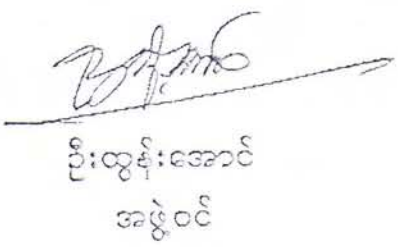 ဦးထွန်းအောင်
အဖွဲ့ဝင်